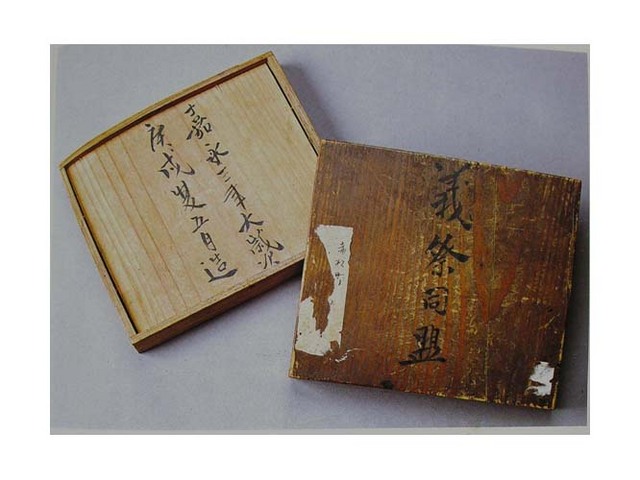 于嘉永三年大歳次
庚戌夏五月造
義祭同盟